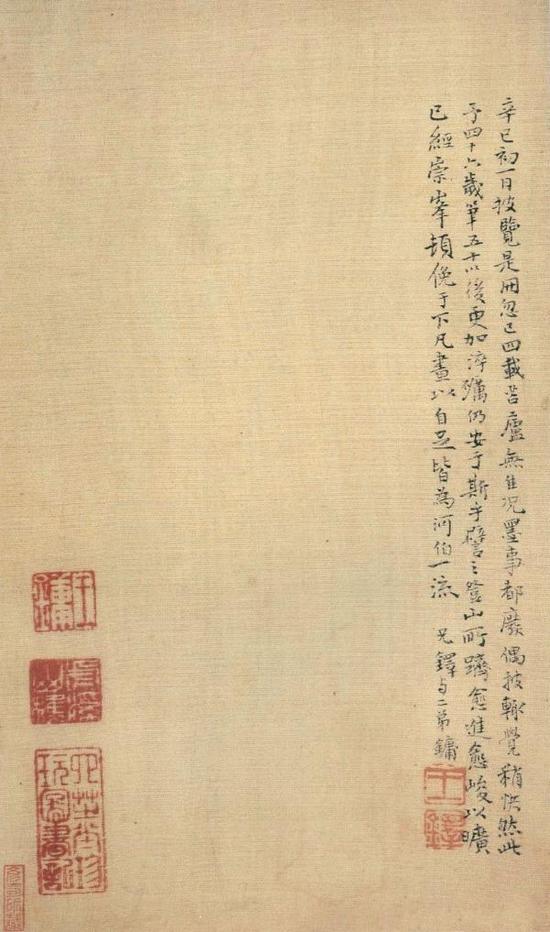 辛巳初一日披覽是冊忽已四載苫廬無佳况墨事都廢偶披輒覺稍快然此
予四十六歲筆五十以後更加淬礪仍安于斯乎譬之登山所躋愈進愈峻以曠
已經崇峯頓俛于下凡畫以自足皆為河伯一流
兄鐸與二弟鏞
王鐸
王鏞